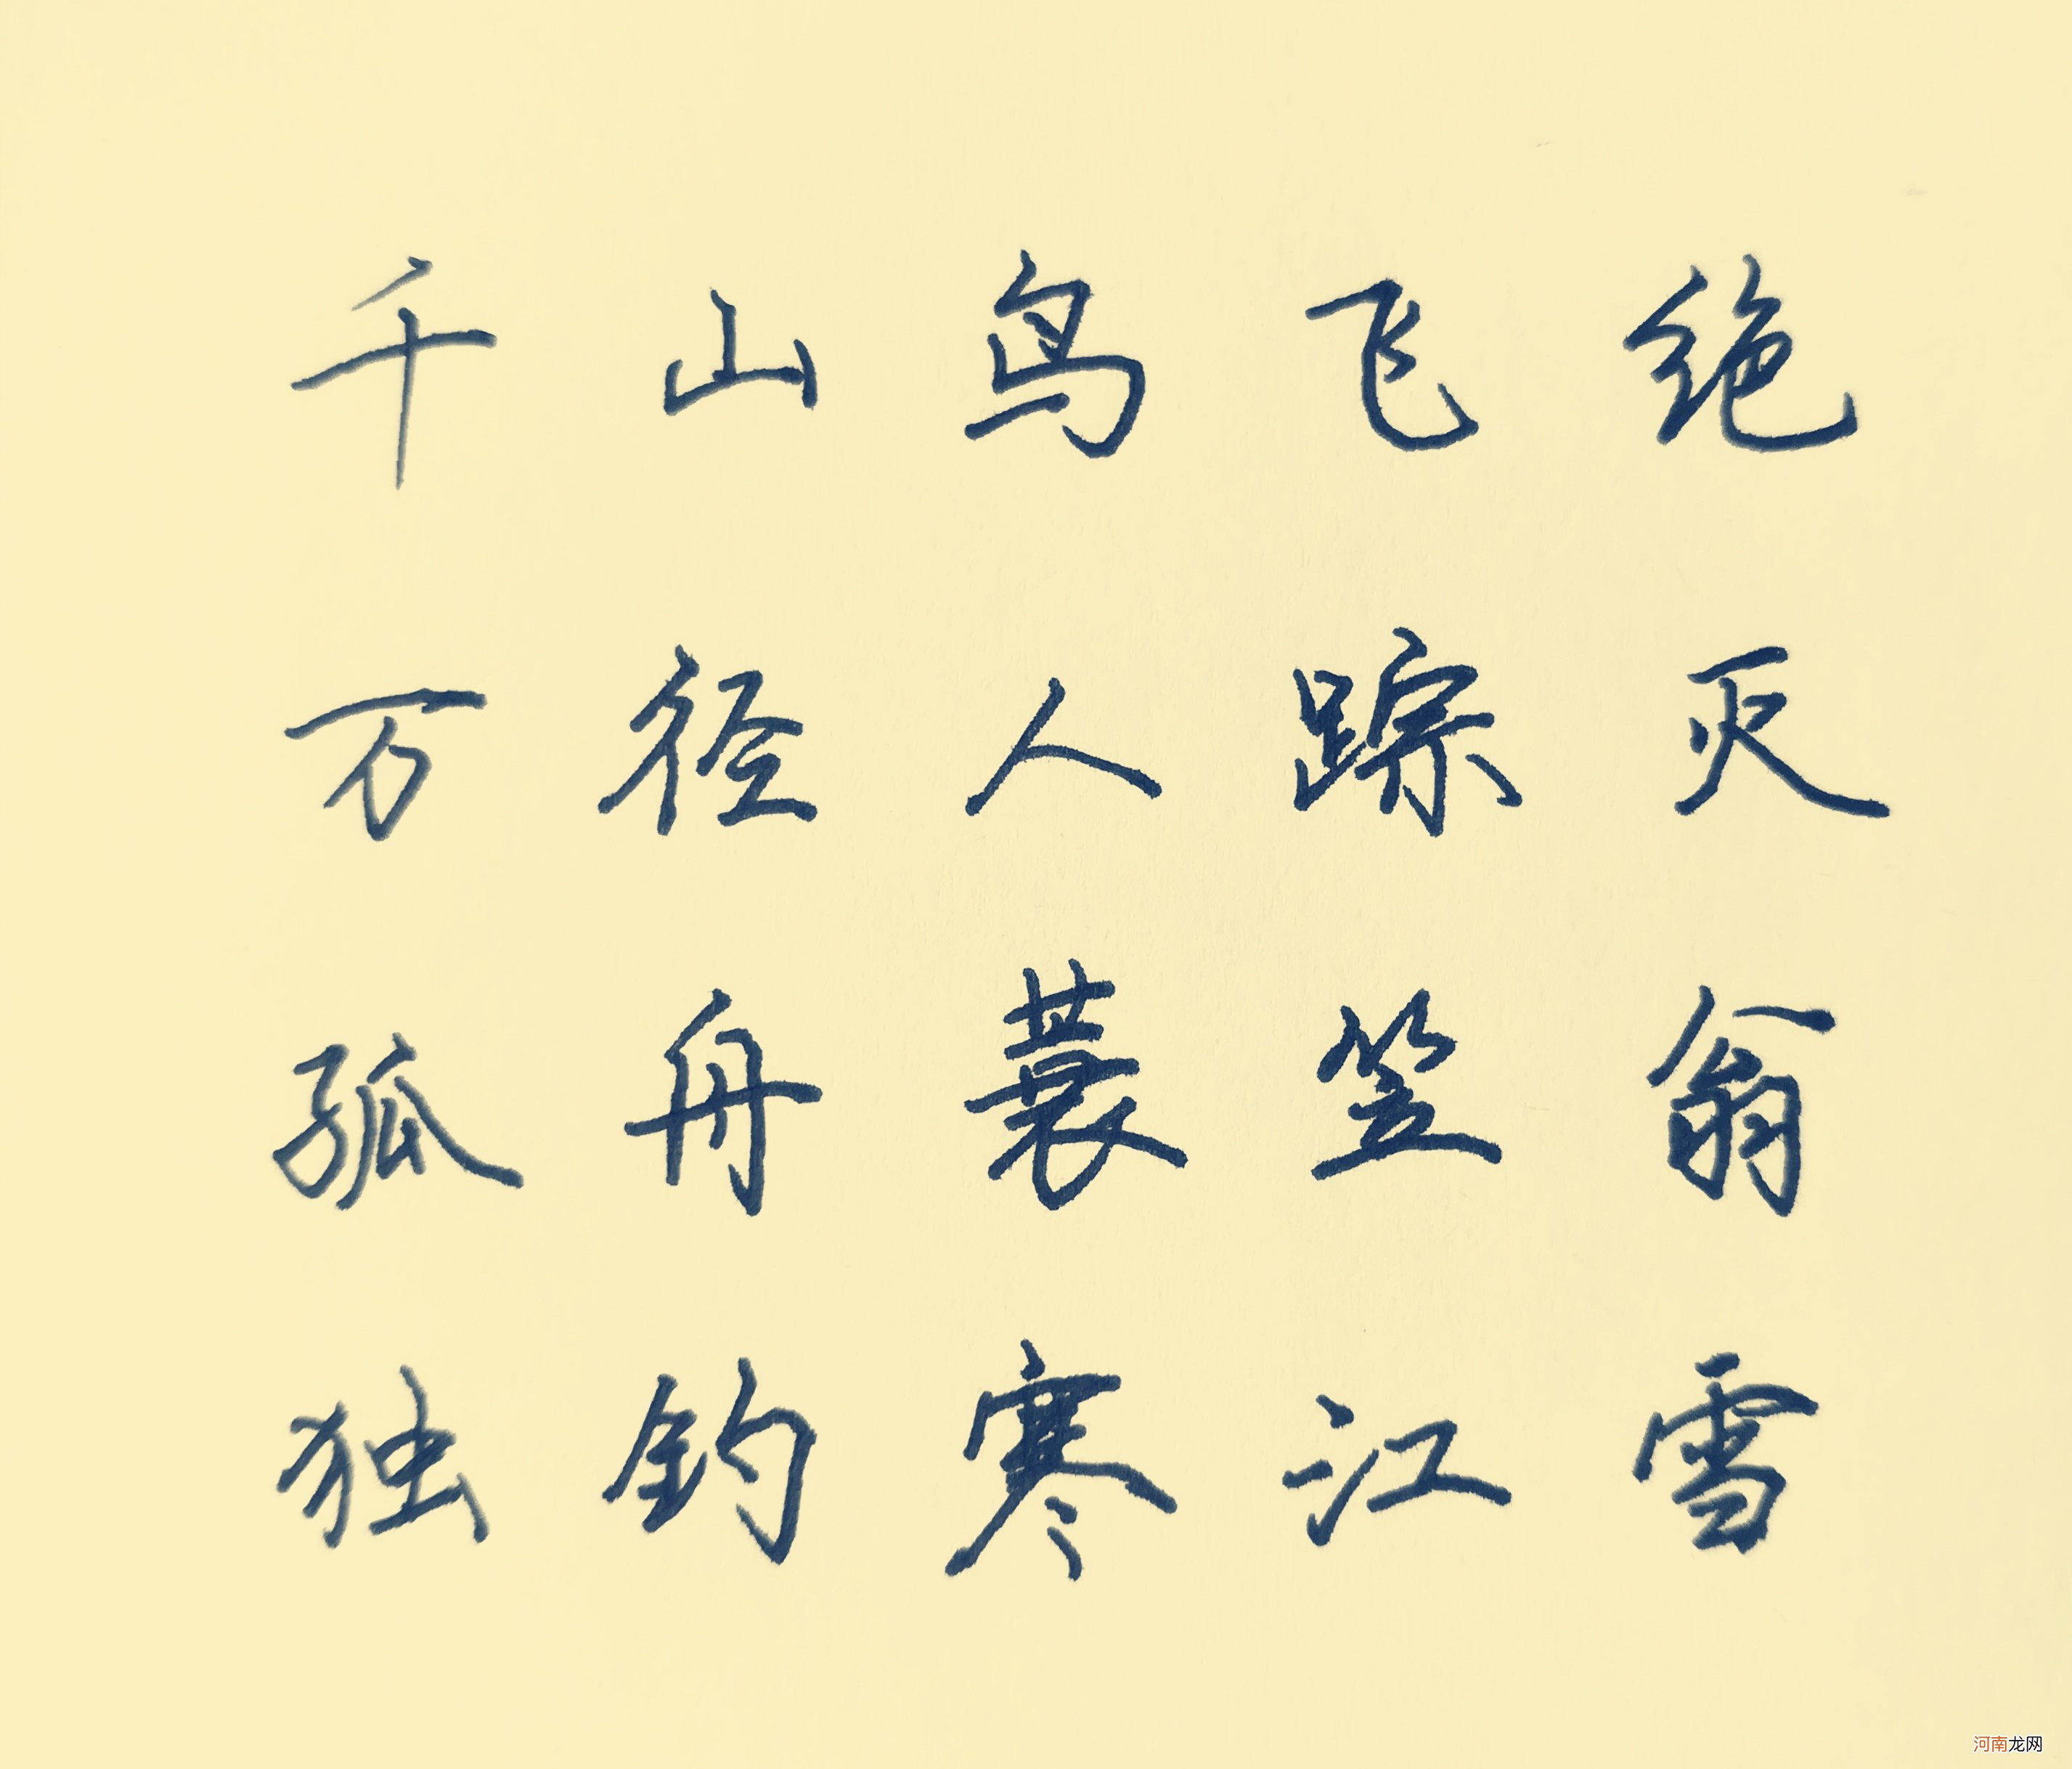 千山鸟飞绝
万径人踪灭
孤舟蓑笠翁
独钓寒江雪
河南龙网